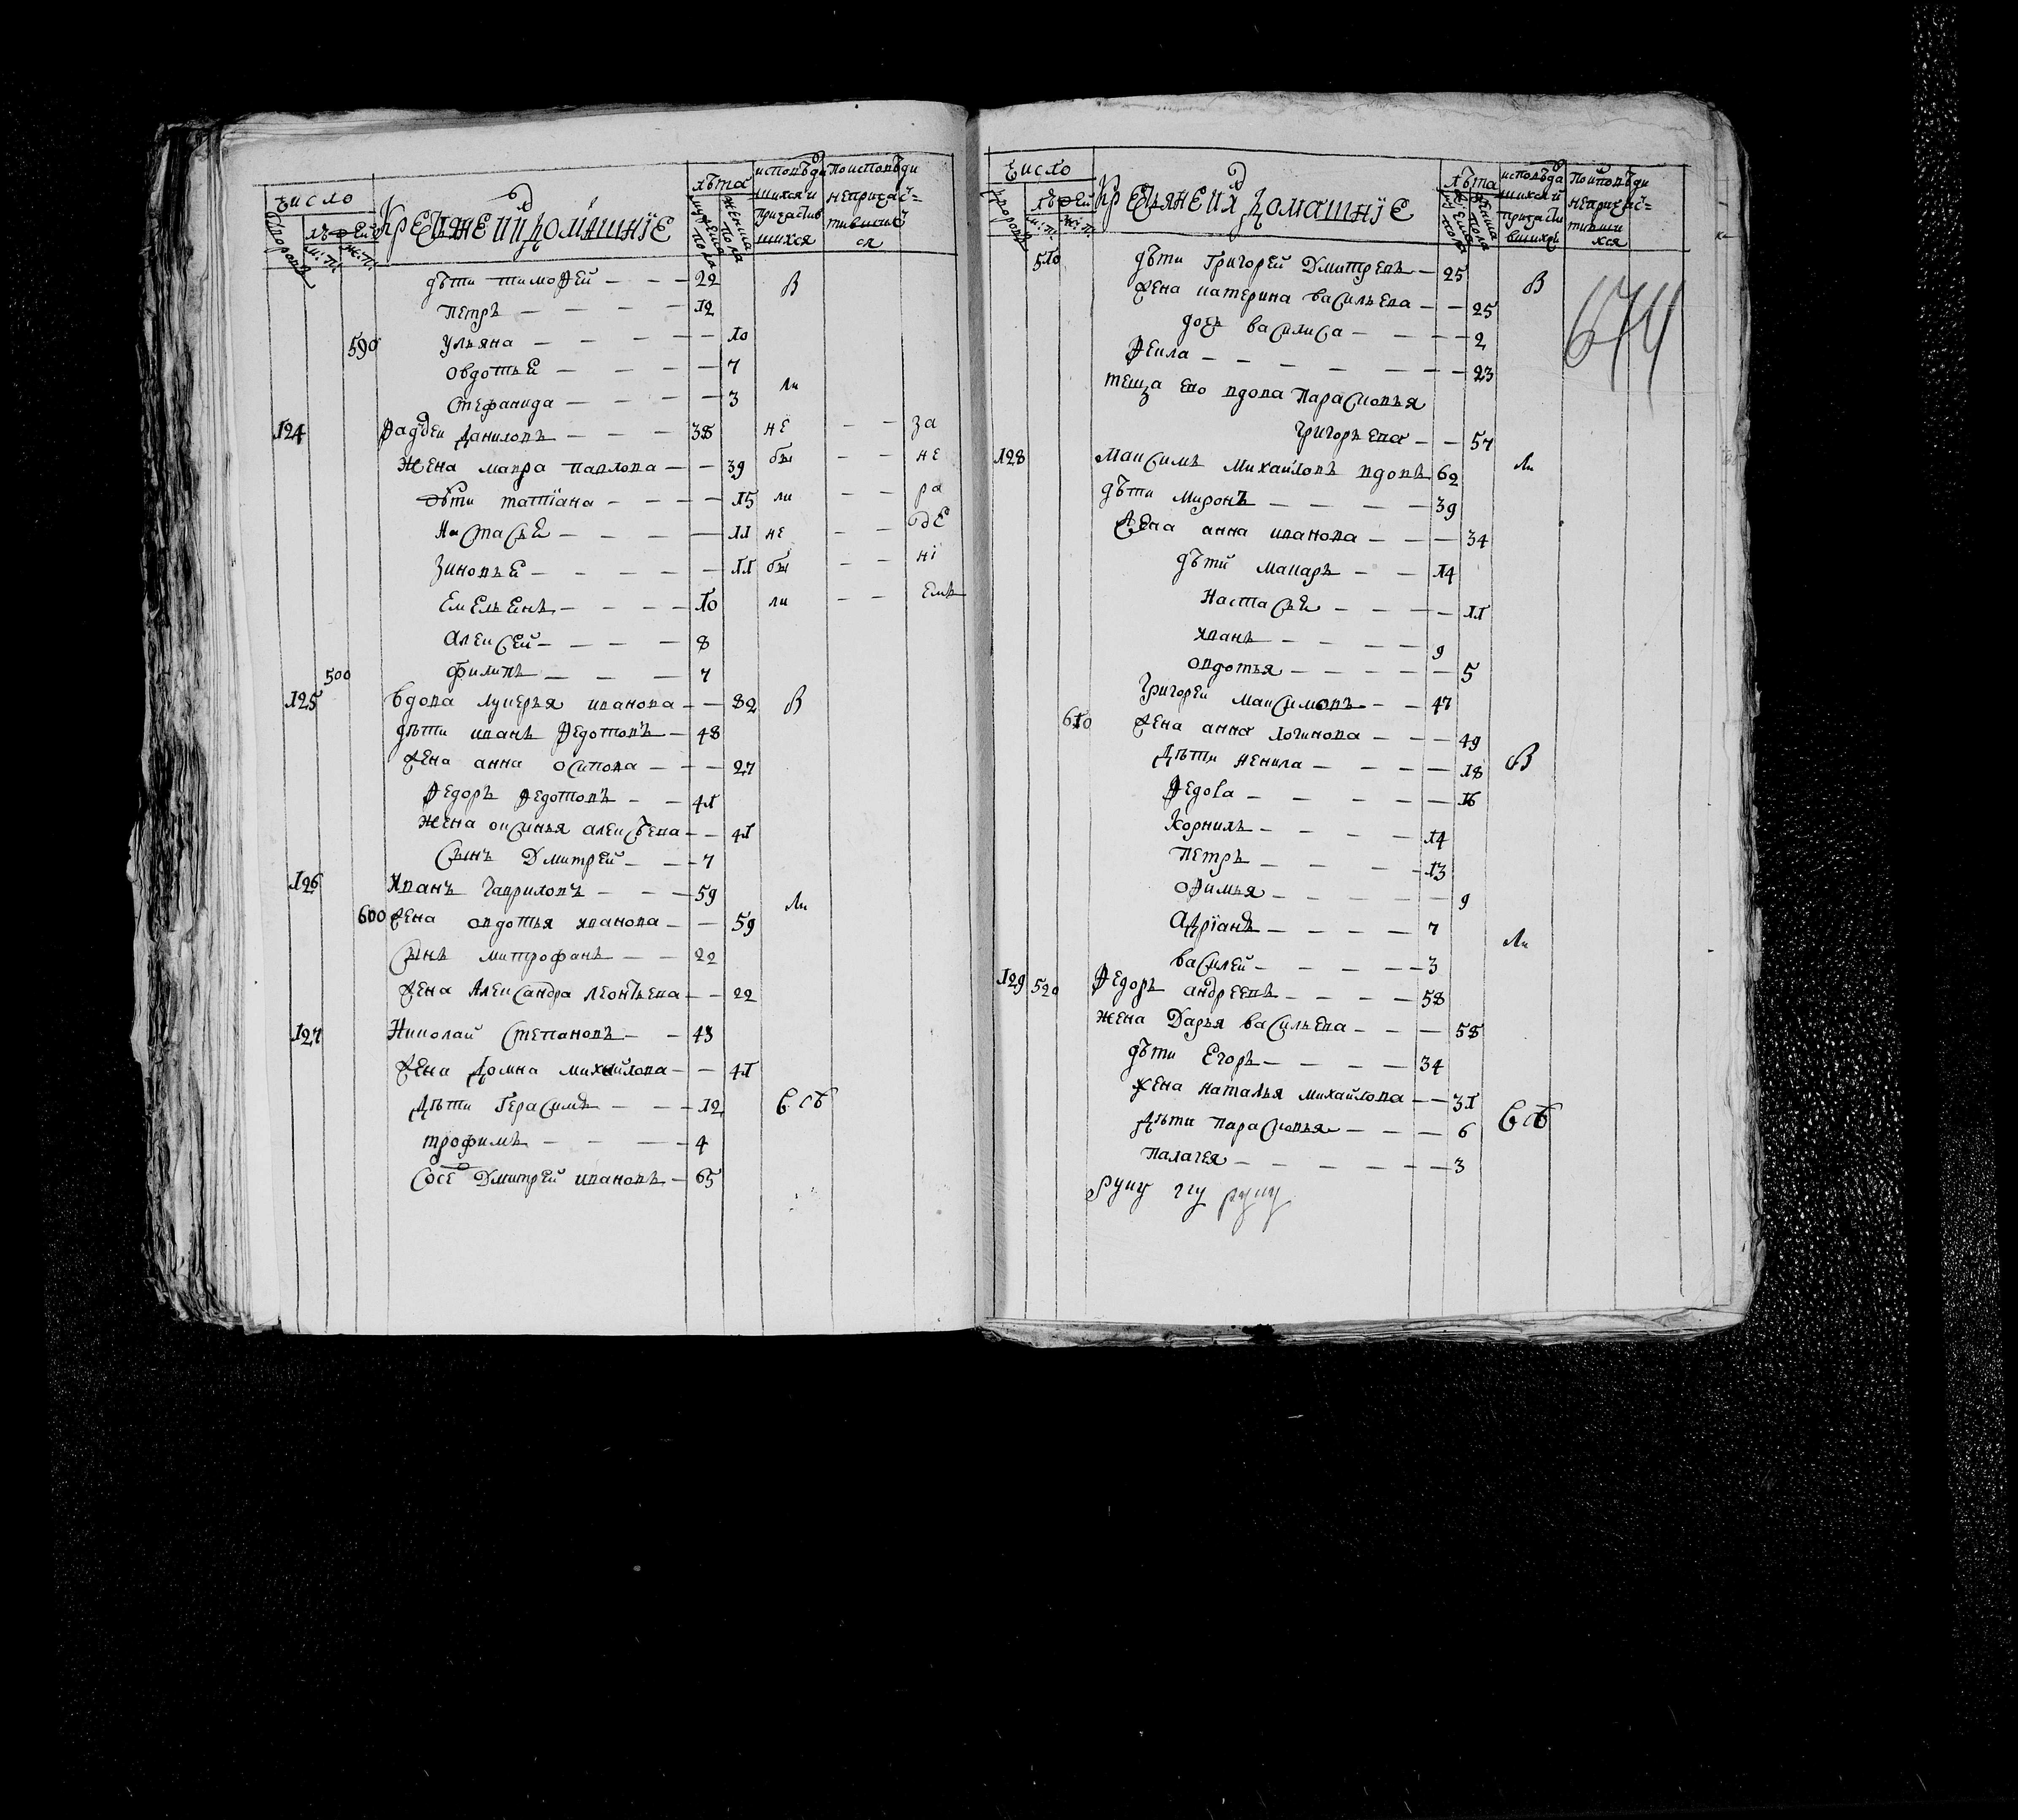 число
дворовъ
людей
м: п:
ж: п:
крестьяне и ихъ домашнїе
лѣта
мужеска пола
женска пола
исповѣда
вшихся и
причастив
шихся
по исповѣди
не причас=
тившихся
дѣти тимофей — — — 22 в
петръ — — — — 12
590 ульяна — — — — — 10
овдотьѣ — — — — — 7
стефанида — — — — — 3 ли
124 фаддей даниловъ — — — 38 не — — за
жена мавра павлова — — 39 бы — — не
дѣти татїана — — — — 15 ли — — ра
настасье — — — — — 11 не — — дѣ
зиновье — — — — — 11 бы — — нї
емельенъ — — — — 10 ли — — емъ
алексей — — — — 8
500 филипъ — — — 7
125 вдова лукерья иванова — — 82 в
дѣти иванъ федотовъ — 48
жена анна осипова — — — 27
федоръ федотовъ — — 41
жена оксинья алексѣева — — 41
сынъ дмитрей — — — 7
126 иванъ гавриловъ — — — 59
600 жена овдотья иванова — — 59 ли
сынъ митрофанъ — — 22
жена александра леонтьева — — 22
127 николай степановъ — — 43
жена домна михайлова — — 41
дѣти герасимъ — — — 12 всѣ
трофимъ — — — — 4
сосѣд дмитрей ивановъ — 65
число
дворовъ
людей
м: п:
ж: п:
крестьяне и ихъ домашнїе
лѣта
мужеска пола
женска пола
исповѣда
вшихся и
причасти
вшихся
по исповѣди
не причас=
тивши
хся
674
510 дѣти григорей дмитревъ — 25 в
жена катерина васильева — — 25
дочь василиса — — — — 2
фекла — — — — — — — 23
теща ево вдова парасковья
григорьева — — 57
128 максимъ михайловъ вдовъ 62 ли
дѣти миронъ — — — — 39
жена анна иванова — — — 34
дѣти макаръ — — 14
настасье — — — — 11
иванъ — — — — 9
овдотья — — — — — 5
григорей максимовъ — — 47
610 жена анна логинова — — — 49
дѣти ненила — — — — 18 в
федора — — — — — 16
корнилъ — — — — 14
петръ — — — — 13
офимья — — — — — 9
адрїанъ — — — — 7
василей — — — — — 3 ли
129 520 федоръ андреевъ — — — — 58
жена дарья васильева — — — 58
дѣти егоръ — — — — 34
жена наталья михайлова — — 31
дѣти парасковья — — — 6 всѣ
палагея — — — — — — 3